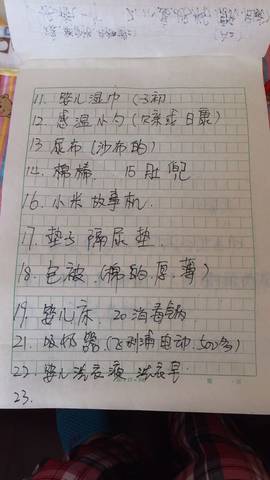 11. 婴儿湿巾 (3初)
12. 感温小勺 (欠菜或日康)
13 尿布 (沙布的)
14. 棉棒, 15 肚兜
16. 小米故事机.
17. 垫子 隔尿垫
18. 包被 (棉的, 厚, 薄)
19. 婴儿床, 20 消毒锅
21. 吸奶器 (飞利浦自动, 500多)
22. 婴儿洗衣液 洗衣皂
23.